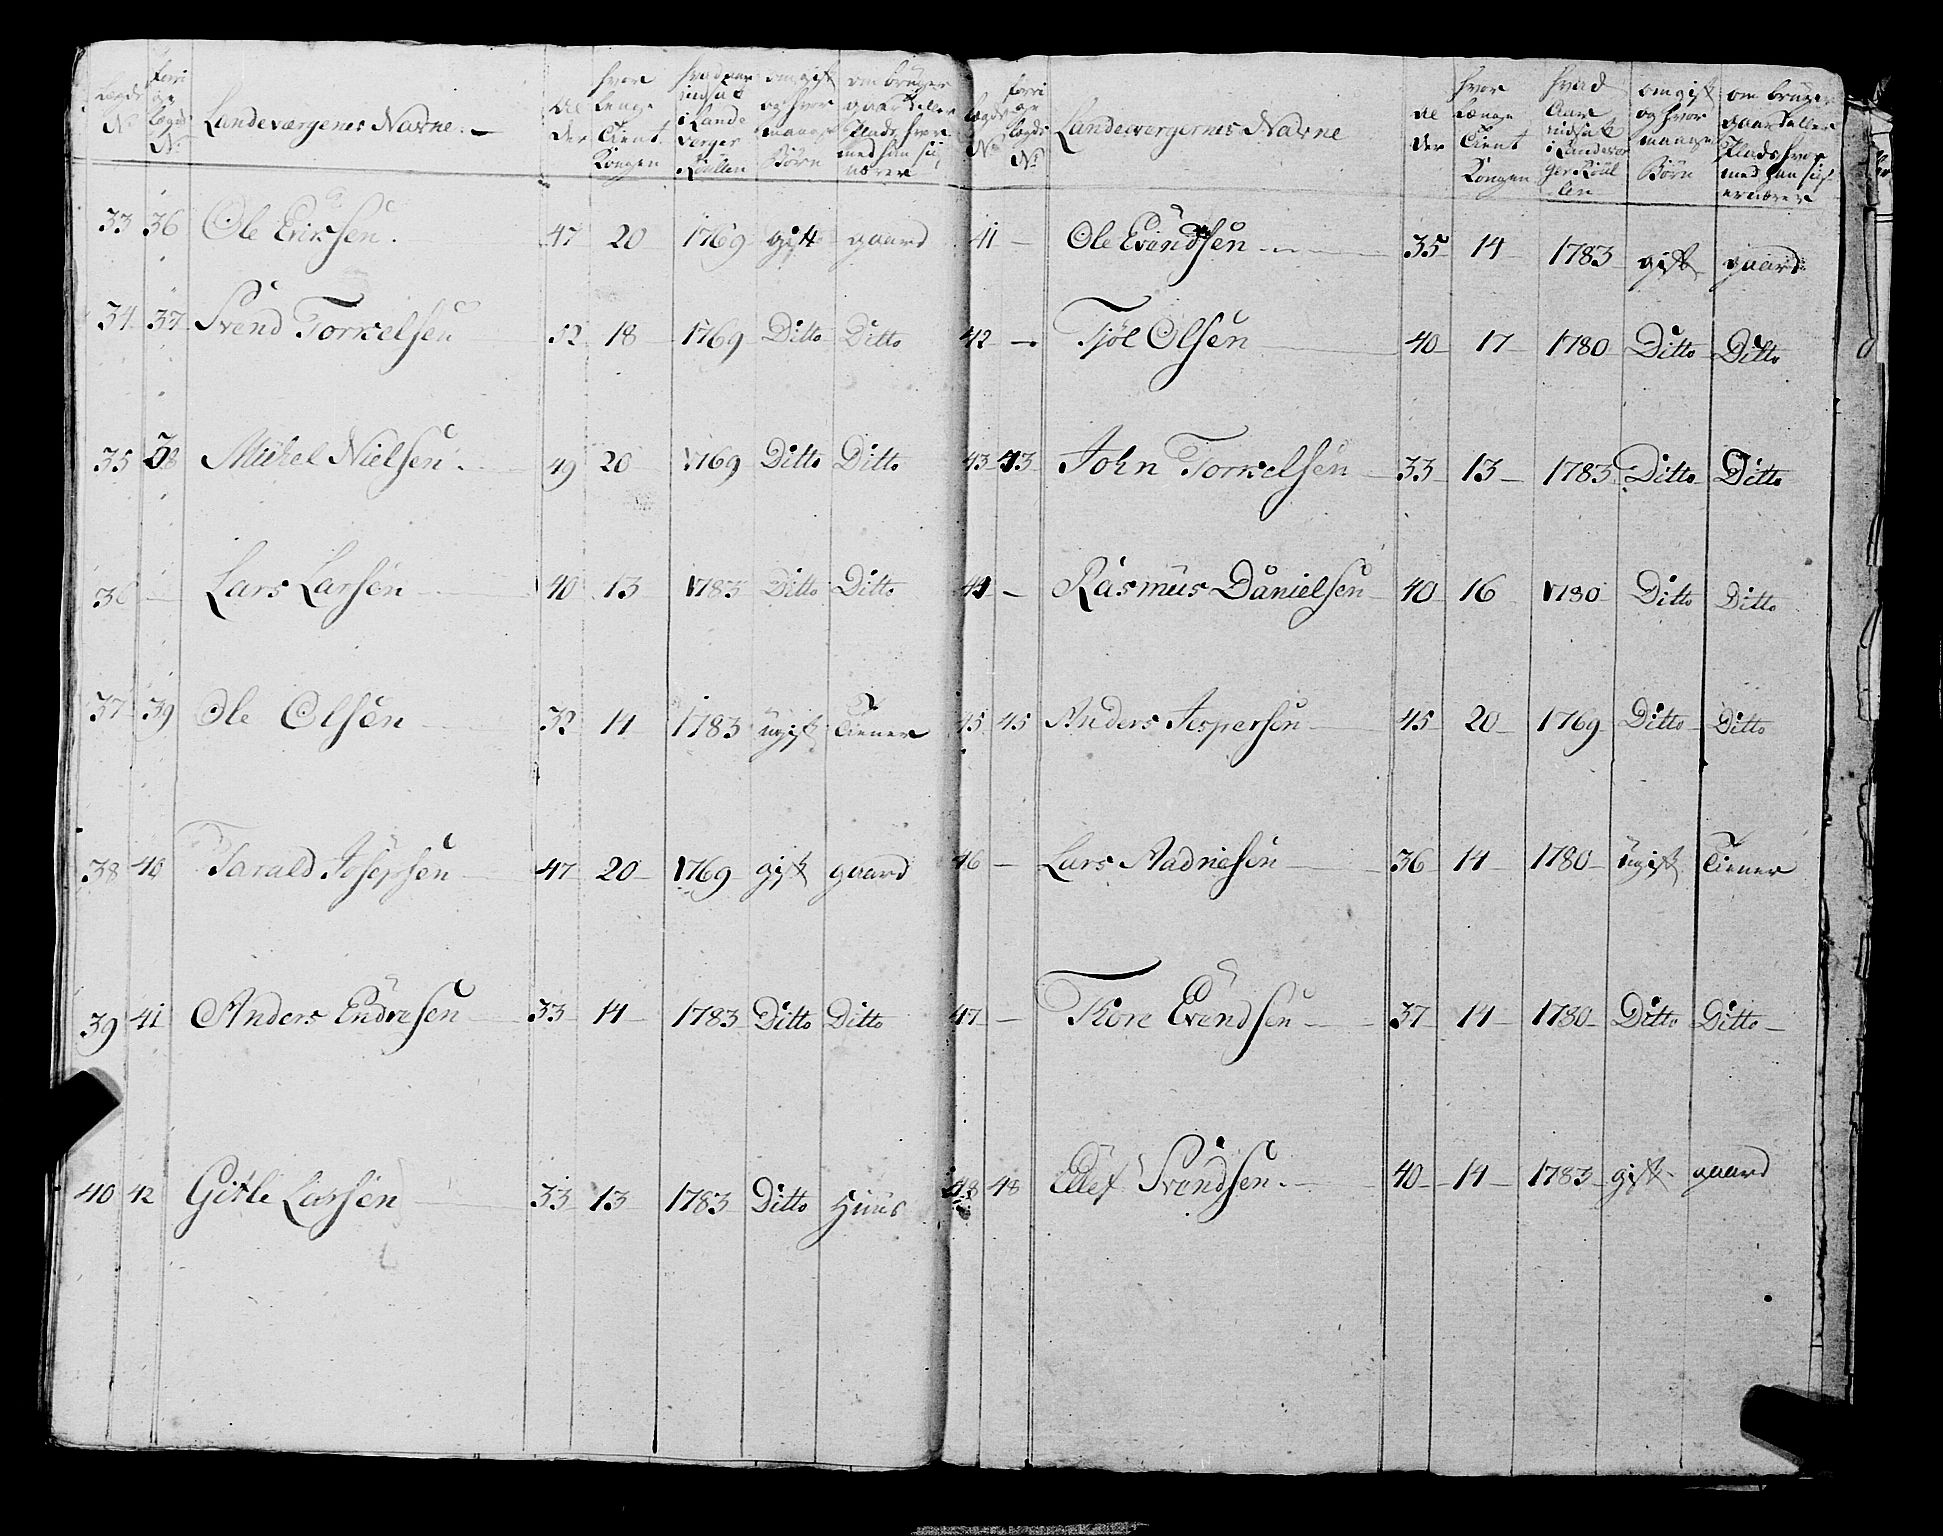 Lægds No | Forri ge Lægds No | Landeværgernes Navne. | Al der | hvor lenge Tient Kongen | hvad aar indsat i Lande værger Rullen | om gift og hvor mange Börn | om bruger gaard eller Plads, hvor med han sig nærer
33 36 Ole Eriksen. 47 20 1769 gift gaard
34 37 Svend Torkelsen 52 18 1769 Ditto Ditto
35 38 Mikel Nielsen. 49 20 1769 Ditto Ditto
36 — Lars Larsen 40 13 1783 Ditto Ditto
37 39 Ole Olsen 32 14 1783 ugift Tiener
38 40 Tarald Josepsen 47 20 1769 gift gaard
39 41 Anders Endresen 33 14 1783 Ditto Ditto
40 42 Gitle Larsen 33 13 1783 Ditto Huus
Lægds No | forri ge Lægds No | Landeværgernes Navne | Al der | hvor Længe Tient Kongen | hvad Aar indsat i Landevær ger Rull len | om gift og hvor mange Börn | om bruger gaard eller Plads hvor med han sig ernærer
41 — Ole Evendsen 35 14 1783 gift gaard
42 — Tjöl Olsen 40 17 1780 Ditto Ditto
43 43 John Torkelsen 33 13 1783 Ditto Ditto
44 — Rasmus Danielsen 40 16 1780 Ditto Ditto
45 45 Anders Jespersen 45 20 1769 Ditto Ditto
46 — Lars Madniesen 36 14 1780 ugift Tiener
47 — Tore Evendsen 37 14 1780 Ditto Ditto
48 48 Ellef Svendsen. 40 14 1783 gift gaard